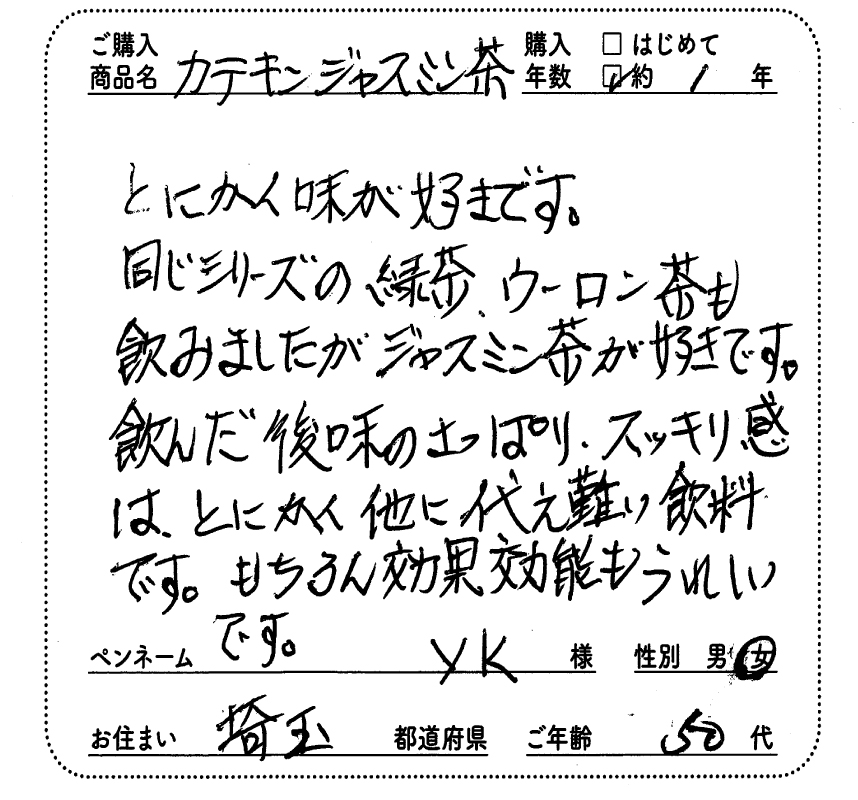 ご購入 商品名 カテキンジャスミン茶 購入年数 □ はじめて ☑ 約 1 年
とにかく味が好きです。
同じシリーズの緑茶、ウーロン茶も
飲みましたがジャスミン茶が好きです。
飲んだ後味のさっぱり、スッキリ感
は、とにかく他に代え難い飲料
です。もちろん効果効能もうれしい
です。
ペンネーム YK 様 性別 男・女
お住まい 埼玉 都道府県 ご年齢 50 代